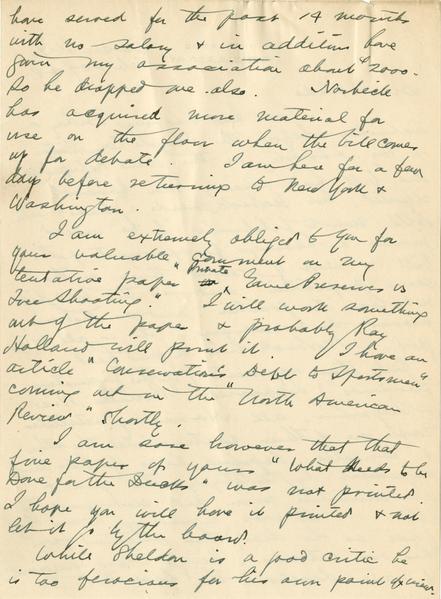 have served for the past 14 months
with no salary & in addition have
given my association about $2000.
So he dropped me also. Norbeck
has acquired more material for
use on the floor when the bill comes
up for debate. I am here for a few
days before returning to New York &
Washington.
I am extremely obliged to you for
your valuable comment on my
tentative paper "Private Game Preserves vs
Free Shooting." I will work something
out of the paper & probably Ray
Holland will print it. I have an
article "Conservation's Debt to Sportsmen"
coming out in the "North American
Review" shortly.
I am sore however that that
fine paper of yours "What Needs to be
Done for the Ducks" was not printed.
I hope you will have it printed & not
let it go by the board.
While Sheldon is a good critic he
is too ferocious for his own point of view.